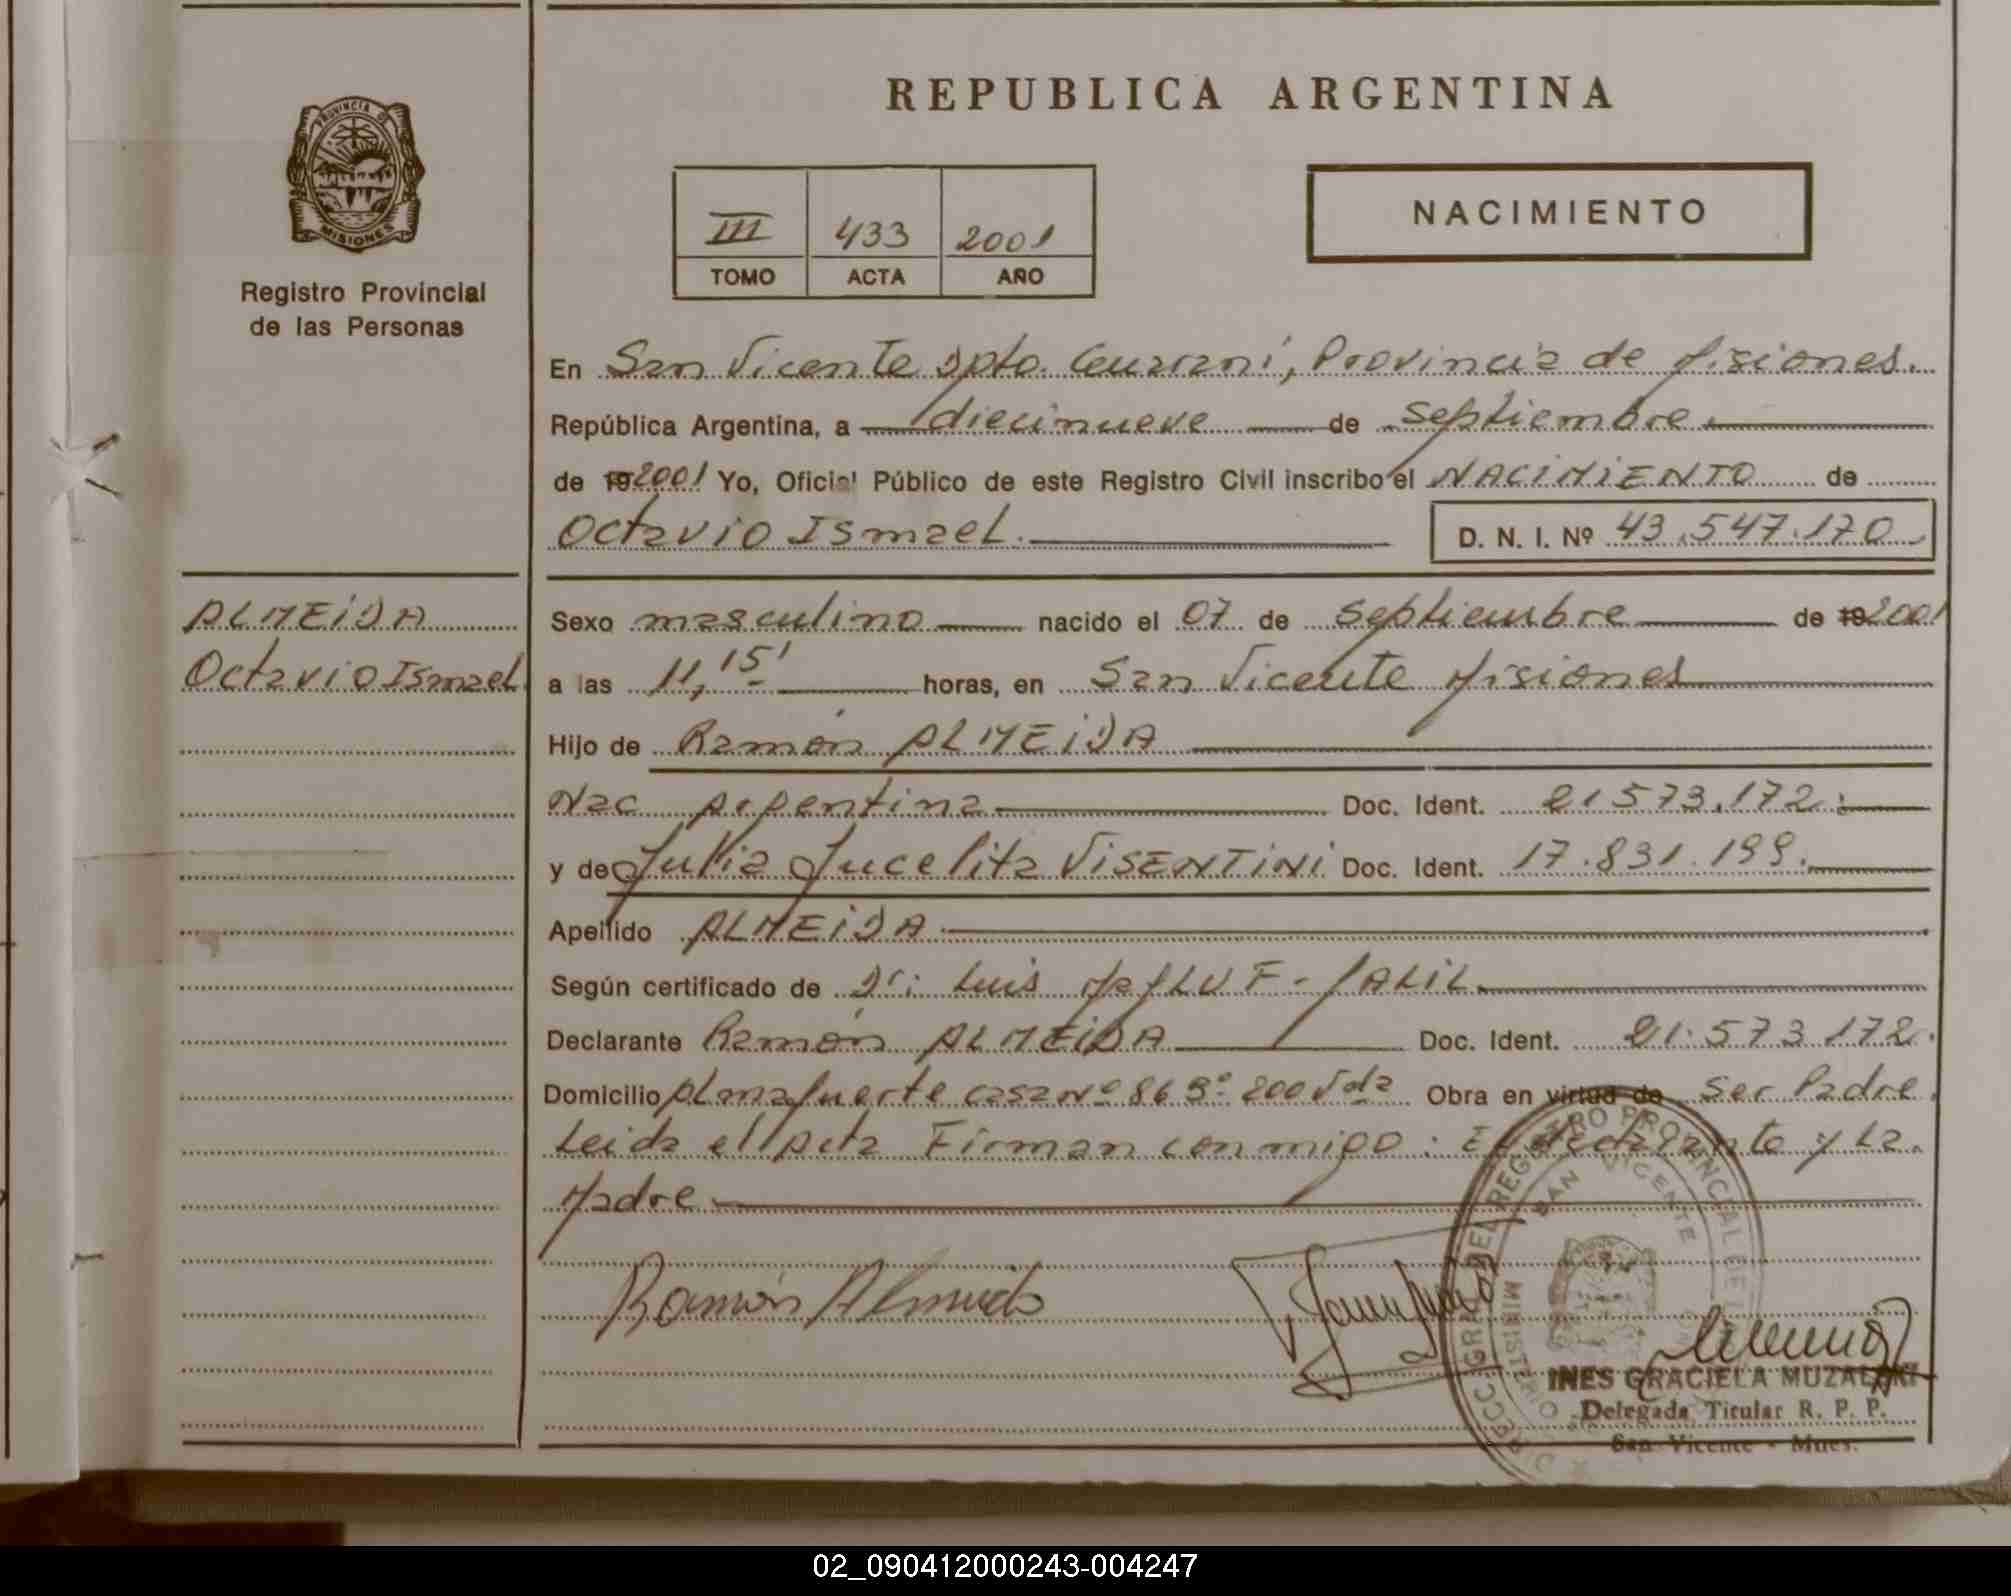 REPUBLICA ARGENTINA
PROVINCIA DE
MISIONES
Registro Provincial
de las Personas
III 433 2001
TOMO ACTA AÑO
NACIMIENTO
En San Vicente Dpto. Guaraní, Provincia de Misiones.
República Argentina, a diecinueve de septiembre
de 19 2001 Yo, Oficial Público de este Registro Civil inscribo el NACIMIENTO de
Octavio Ismael. D. N. I. Nº 43.547.170
ALMEIDA
Octavio Ismael
Sexo masculino nacido el 07 de septiembre de 19 2001
a las 11,15' horas, en San Vicente Misiones
Hijo de Ramón ALMEIDA
Nac Argentina Doc. Ident. 21.573.172.
y de Julia Jucelita VISENTINI Doc. Ident. 17.831.199.
Apellido ALMEIDA
Según certificado de Dr: Luis JALIL
Declarante Ramón ALMEIDA Doc. Ident. 21.573.172.
Domicilio Almafuerte casa Nº 86 Bº 200 Vda Obra en virtud de ser Padre.
Leida el Acta Firman conmigo: El declarante y La
Madre
Ramón Almeida
REGISTRO PROVINCIAL DE L
SAN VICENTE
MINISTERIO
INES GRACIELA MUZALSKI
Delegada Titular R. P. P.
San Vicente - Mnes.
02_090412000243-004247